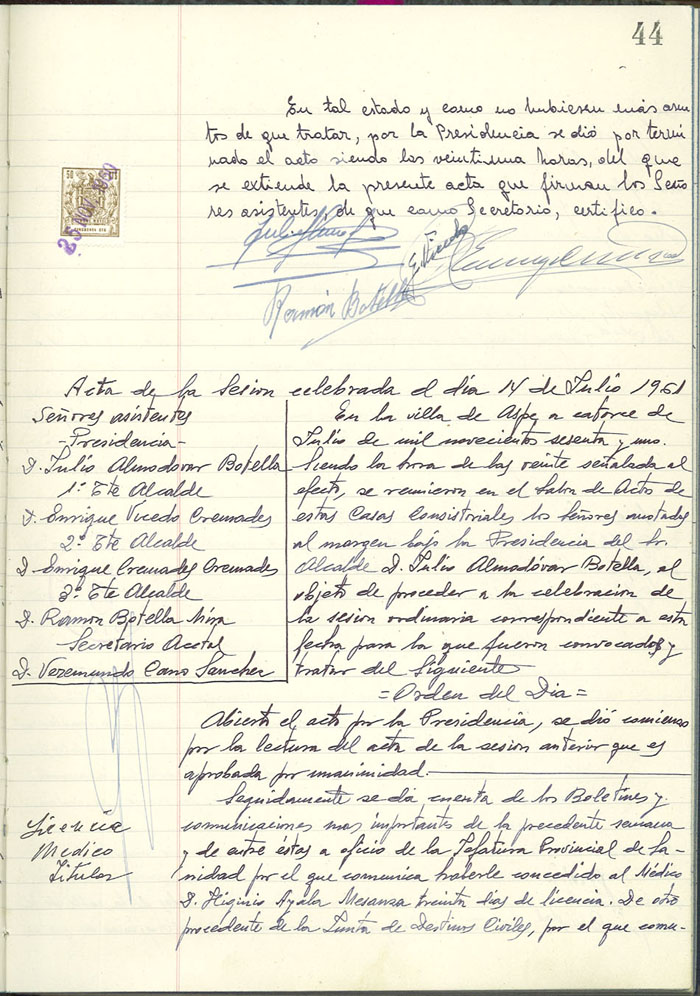 44
En tal estado y como no hubiesen más asun
tos de que tratar, por la Presidencia se dió por termi
nado el acto siendo las veintiuna horas, del que
se extiende la presente acta que firman los Seño
res asistentes, de que como Secretario, certifico.
50
25 NOV. 1960
E. Vicedo
Ramón Botella
Acta de la Sesion celebrada el día 14 de Julio 1961
Señores asistentes
-Presidencia-
D. Julio Almodovar Botella
1º Tte Alcalde
D. Enrique Vicedo Cremades
2º Tte Alcalde
D. Enrique Cremades Cremades
3º Tte Alcalde
D. Ramon Botella Mira
Secretario Acctal
D. Veremundo Cano Sanchez
En la villa de Aspe, a catorce de
Julio de mil novecientos sesenta y uno.
Siendo la hora de las veinte señalada al
efecto, se reunieron en el Salon de Actos de
estas Casas Consistoriales los señores anotados
al margen bajo la Presidencia del Sr.
Alcalde D. Julio Almodóvar Botella, al
objeto de proceder a la celebracion de
la sesion ordinaria correspondiente a esta
fecha para la que fueron convocados y
tratar del siguiente
=Orden del Dia=
Abierto el acto por la Presidencia, se dió comienzo
por la lectura del acta de la sesion anterior que es
aprobada por unanimidad.
Seguidamente se da cuenta de los Boletines y
comunicaciones mas importantes de la precedente semana
y de entre éstas a oficio de la Jefatura Provincial de Sa-
nidad por el que comunica haberle concedido al Médico
D. Higinio Ayala Mesanza treinta días de licencia. De otro
procedente de la Junta de Destinos Civiles, por el que comu-
Licencia
Medico
Titular